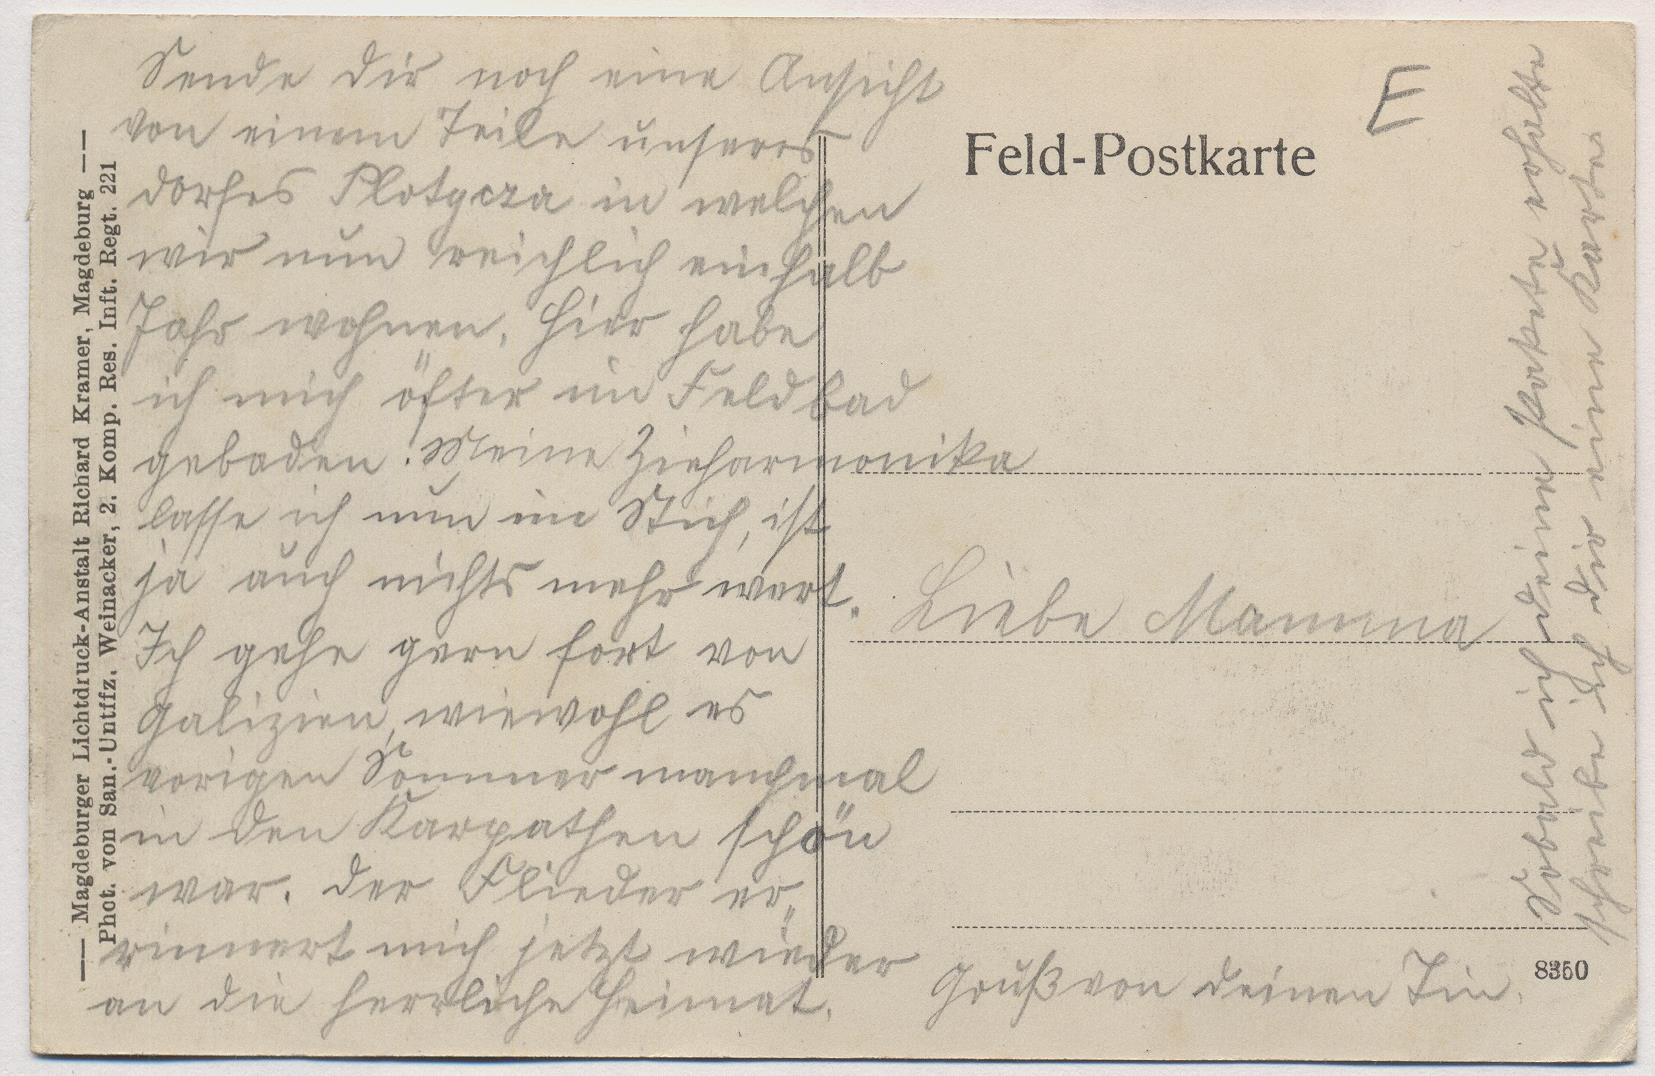 Sende dir noch eine Ansicht
von einem Teile unseres
dorfes Plotycza in welchen
wir nun reichlich einhalb
Jahr wohnen. Hier habe
ich mich öfter im Feldbad
gebaden! Meine Zieharmonika
lasse ich nun im Stich, ist
ja auch nichts mehr wert.
Ich gehe gern fort von
Galizien, wiewohl es
vorigen Sommer manchmal
in den Karpathen schön
war. Der Flieder er„
rinnert mich jetzt wieder
an die herrliche Heimat.
Magdeburger Lichtdruck-Anstalt Richard Kramer, Magdeburg
Phot. von San.-Untffz. Weinacker, 2. Komp. Res. Inft. Regt. 221
E
Feld-Postkarte
Liebe Mamma
Gruß von deinen
8350
Sobald ich deine Pakete erhalte
schreibe ich dir eine Karte.